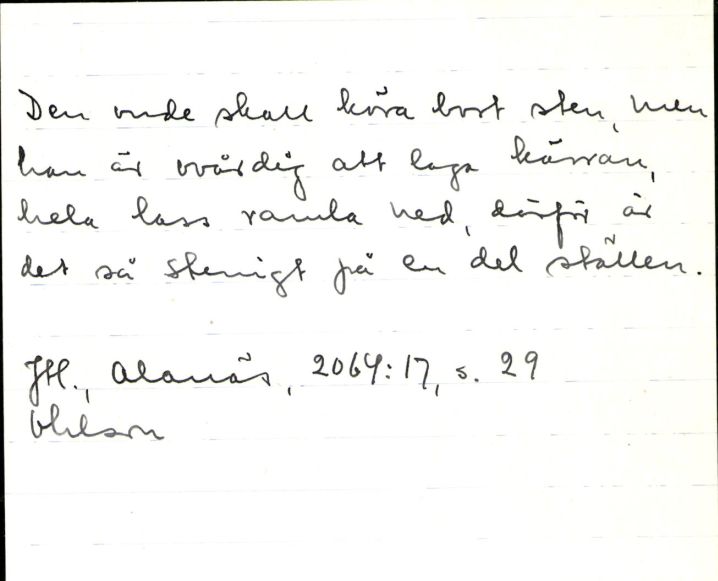 Den onde skall köra bort sten, men
han är ovårdig att laga kärran,
hela lass ramla ned, därför är
det så stenigt på en del ställen.
JH., Alanäs, 2064:17, s. 29
Ohlson